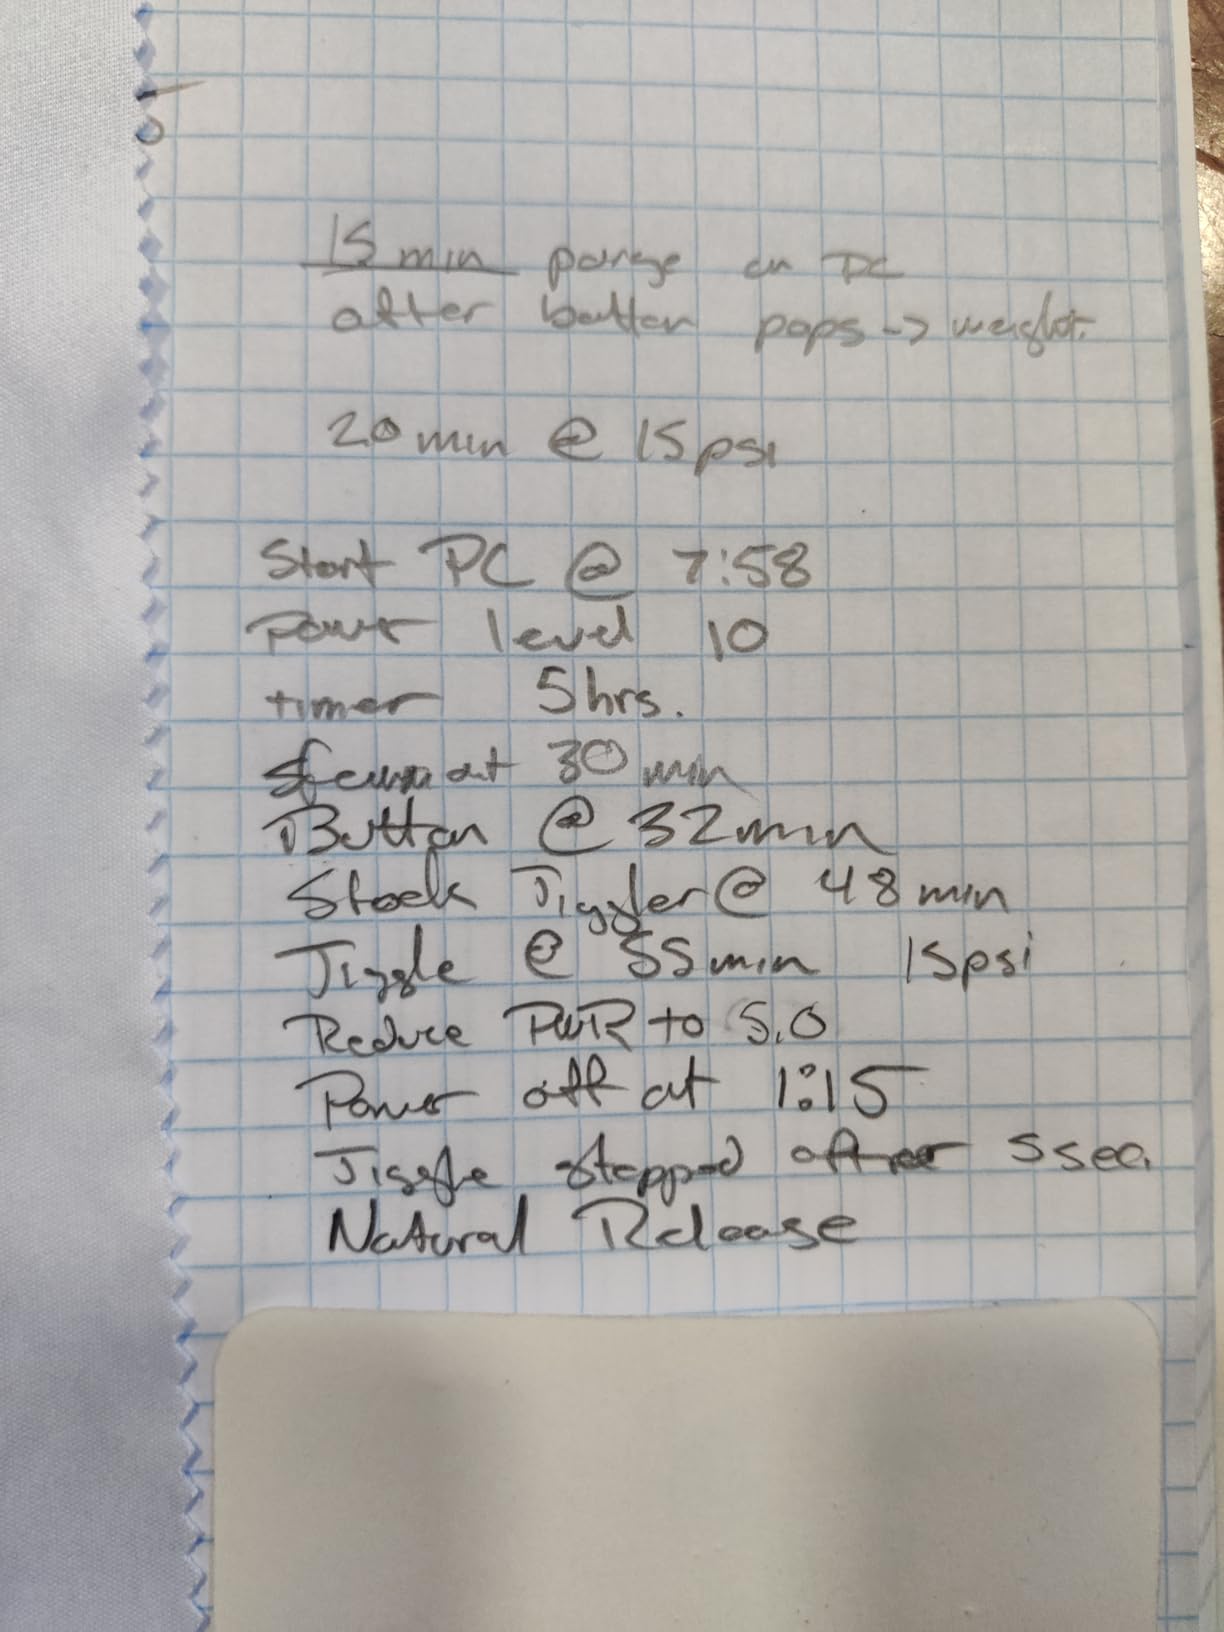 15 min purge on PC
after button pops -> weight.
20 min @ 15psi
Start PC @ 7:58
Power level 10
timer 5hrs.
Steam at 30 min
Button @ 32min
Stock Jiggler @ 48 min
Jiggle @ 55min 15psi
Reduce PWR to 5.0
Power off at 1:15
Jiggle stopped after 5sec.
Natural Release